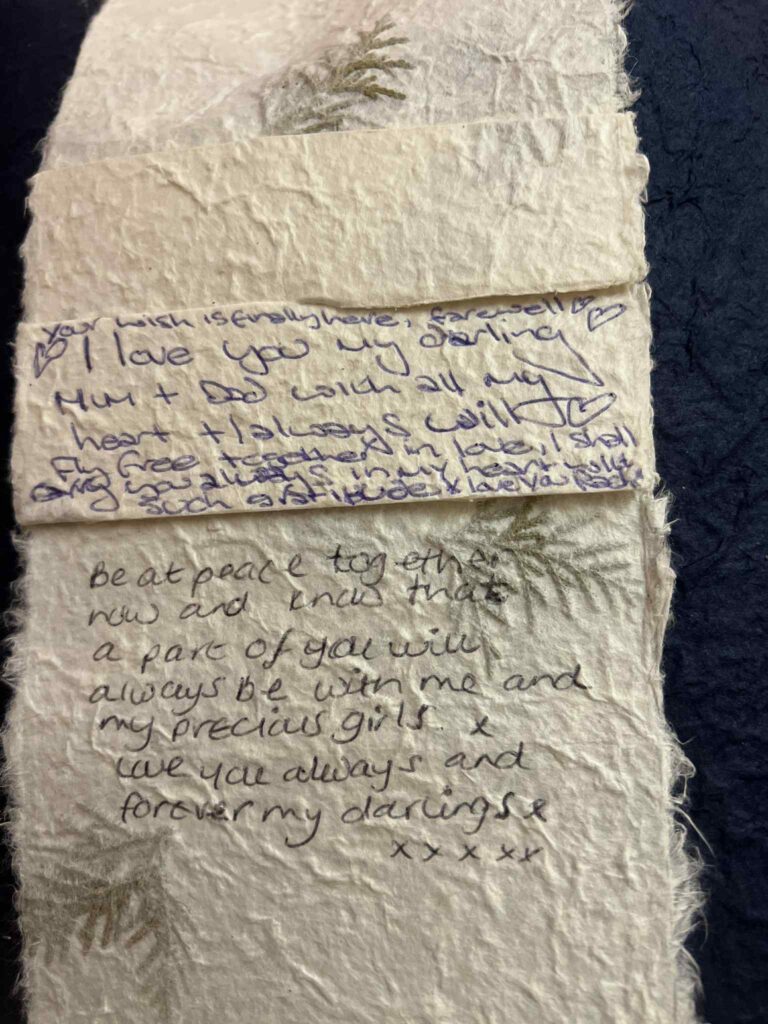 your wish is finally here, farewell ♡
♡ I love you my darling ♡
Mum + Dad with all my
heart + I always will ♡
Fly free together in love, I shall
carry you always in my heart with
such gratitude x love you
Be at peace together
now and know that
a part of you will
always be with me and
my precious girls. x
Love you always and
forever my darlings x
x x x x x